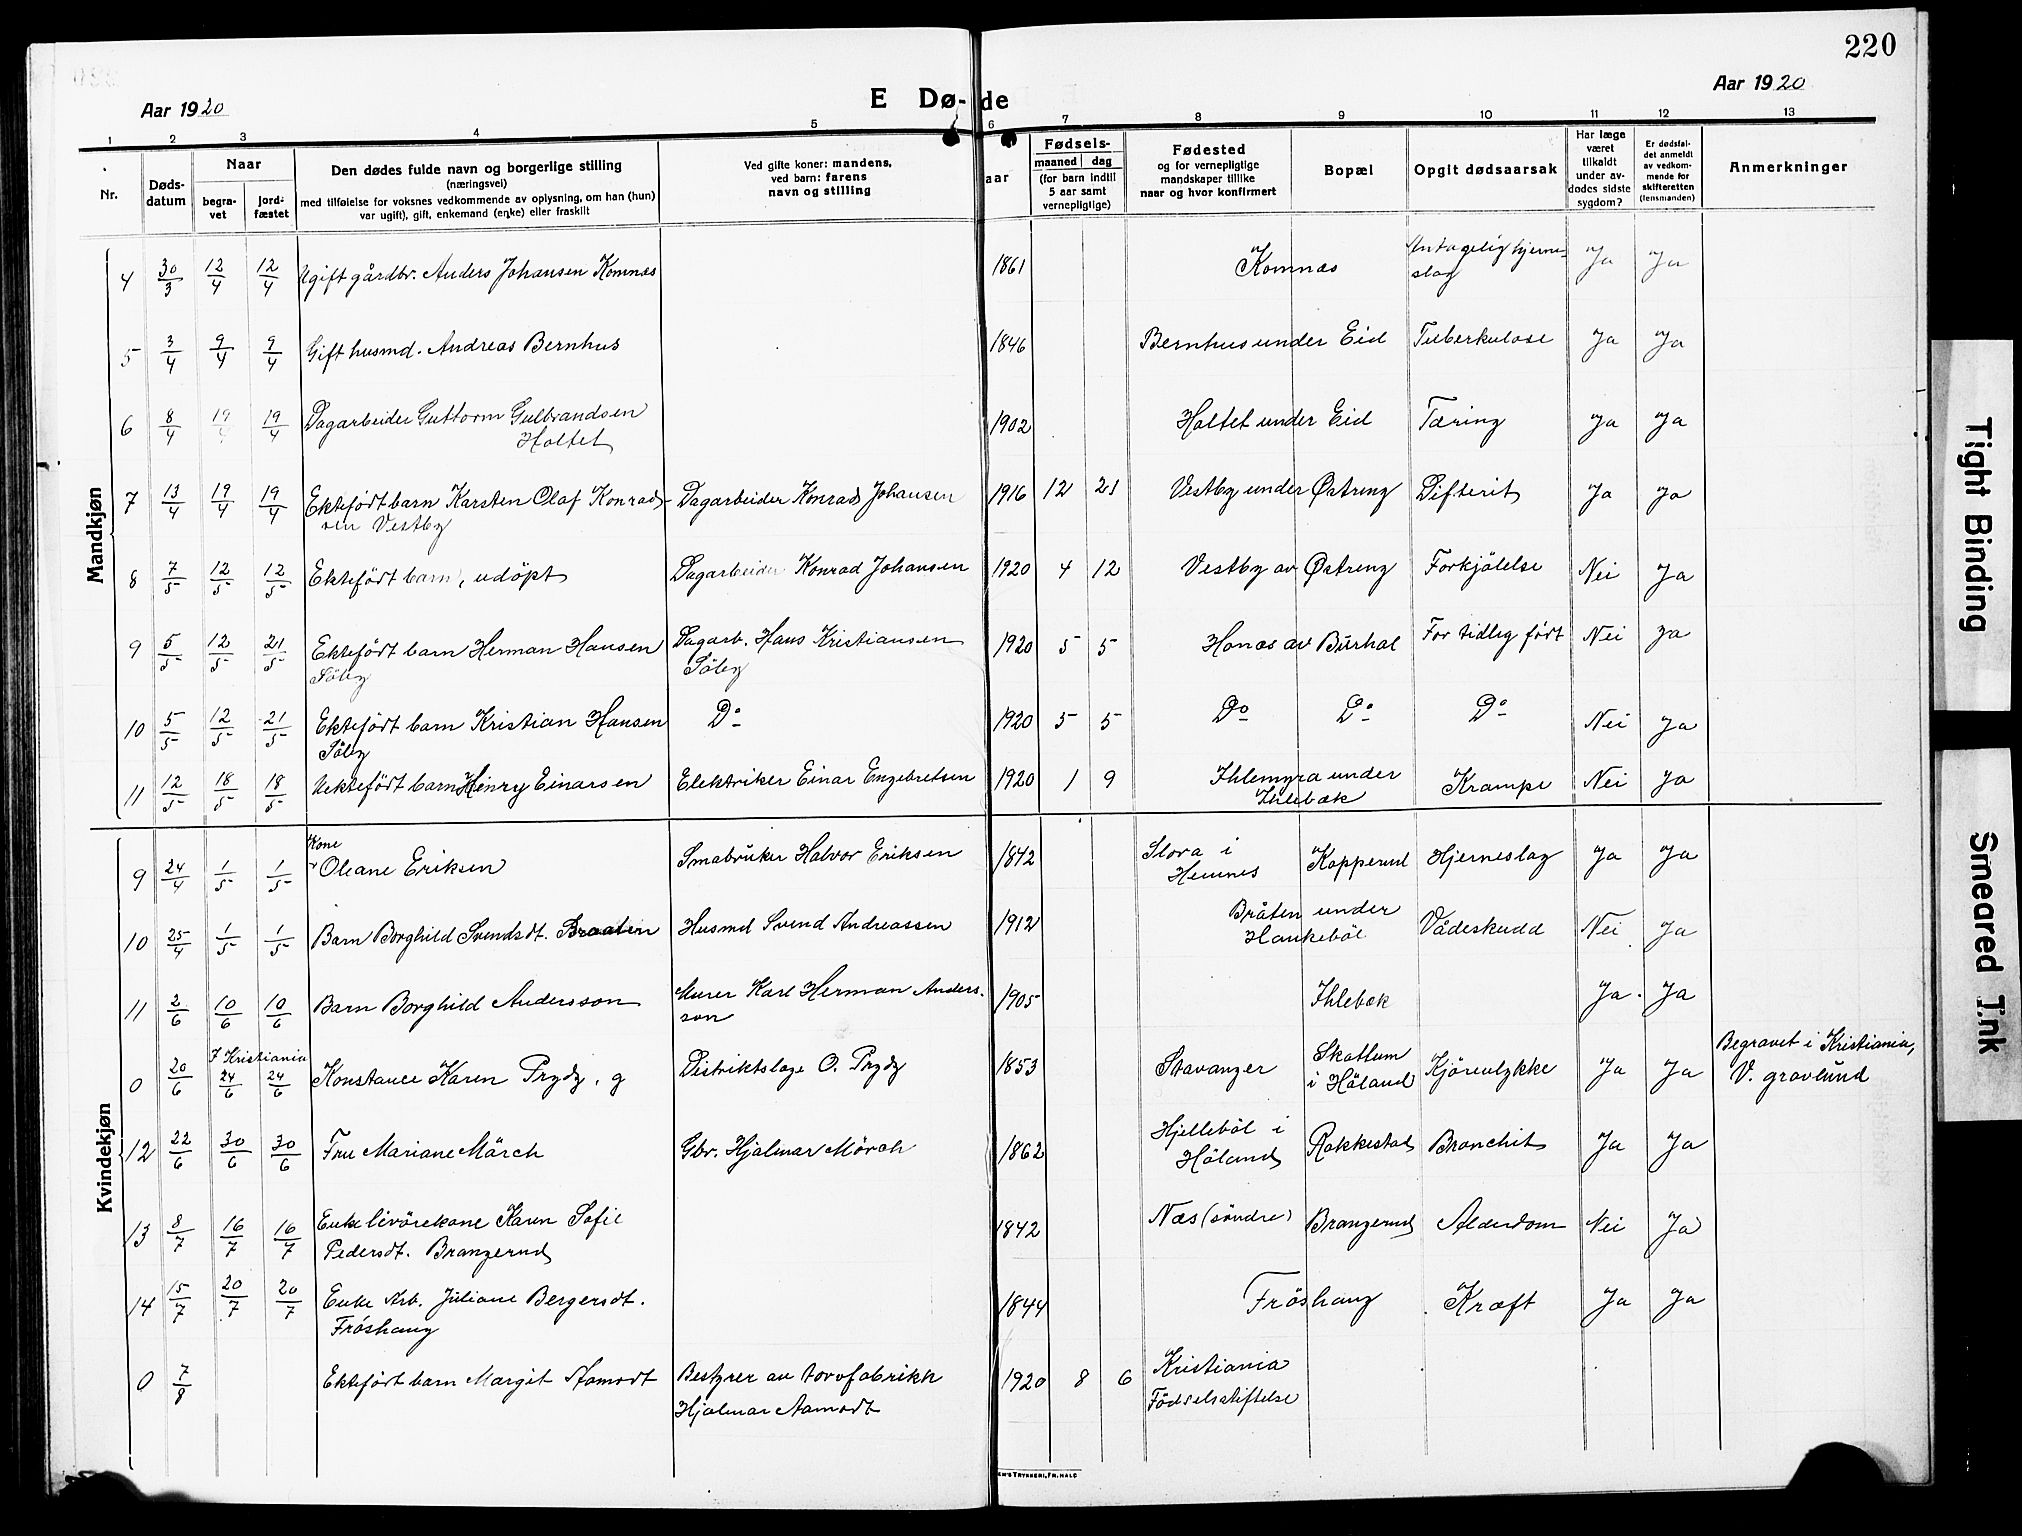 220
Aar 1920 E Dø- de Aar 1920
1 2 3 4 5 6 7 8 9 10 11 12 13
Nr. Døds-datum Naar begra-vet jord-fæstet Den dødes fulde navn og borgerlige stilling (næringsvei) med tilføielse for voksnes vedkommende av oplysning, om han (hun) var ugift), gift, enkemand (enke) eller fraskilt Ved gifte koner: mandens, ved barn: farens navn og stilling aar Fødsels- maaned dag (for barn indtil 5 aar samt vernepligtige) Fødested og for vernepligtige mandskaper tillike naar og hvor konfirmert Bopæl Opgit dødsaarsak Har læge været tilkaldt under av-dødes sidste sygdom? Er dødsfal-det anmeldt av vedkom-mende for skifteretten (lensmanden) Anmerkninger
Mandkjøn
4 30/3 12/4 12/4 Ugift gårdbr. Anders Johansen Komnæs 1861 Komnæs Antagelig hjerne-
slag Ja Ja
5 3/4 9/4 9/4 Gift husmd. Andreas Bernhus 1846 Bernhus under Eid Tuberkulose Ja Ja
6 8/4 19/4 19/4 Dagarbeider Guttorm Gulbrandsen
Holtet 1902 Holtet under Eid Tæring Ja Ja
7 13/4 19/4 19/4 Ektefödt barn Karsten Olaf Konrad-
sen Vestby Dagarbeider Konrad Johansen 1916 12 21 Vestby under Østreng Difterit Ja Ja
8 7/5 12/5 12/5 Ektefödt barn, udöpt Dagarbeider Konrad Johansen 1920 4 12 Vestby av Østreng Forkjölelse Nei Ja
9 5/5 12/5 21/5 Ektefödt barn Herman Hansen
Söby Dagarb. Hans Kristiansen
Söby 1920 5 5 Honæs av Burhol For tidlig födt Nei Ja
10 5/5 12/5 21/5 Ektefödt barn Kristian Hansen
Söby Do 1920 5 5 Do Do Do Nei Ja
11 12/5 18/5 18/5 Uektefödt barn Henry Einarsen Elektriker Einar Engebretsen 1920 1 9 Ihlemyra under
Ihlebæk Krampe Nei Ja
Kvindekjøn
9 24/4 1/5 1/5 Kone
Oleane Eriksen Småbruker Halvor Eriksen 1842 Slora i
Hemnes Kopperud Hjerneslag Ja Ja
10 25/4 1/5 1/5 Barn Borghild Svendsdt. Braaten Husmd Svend Andreassen 1912 Bråten under
Haukeböl Vådeskudd Nei Ja
11 2/6 10/6 10/6 Barn Borghild Andersson Murer Karl Herman Anders-
son 1905 Ihlebæk Ja Ja
0 20/6 I Kristiania
24/6 24/6 Konstance Karen Prydz, g Distriktslæge O. Prydz 1853 Stavanger Skattum
i Höland Kjöreulykke Ja Ja Begravet i Kristiania,
V. gravlund
12 22/6 30/6 30/6 Fru Mariane Mörch Gbr. Hjalmar Mörch 1862 Hjelleböl i
Höland Rakkestad Bronchit Ja Ja
13 8/7 16/7 16/7 Enke livörekone Karen Sofie
Pedersdt. Brangerud 1842 Næs (söndre) Brangerud Alderdom Nei Ja
14 15/7 20/7 20/7 Enke Arb. Juliane Bergersdt.
Fröshaug 1844 Fröshaug Kræft Ja Ja
0 7/8 Ektefödt barn Margit Aamodt Bestyrer av torvfabrikk
Hjalmar Aamodt 1920 8 6 Kristiania
Födselsstiftelse
EN'S TRYKKERI, FR.HALD
Tight Binding
Smeared Ink